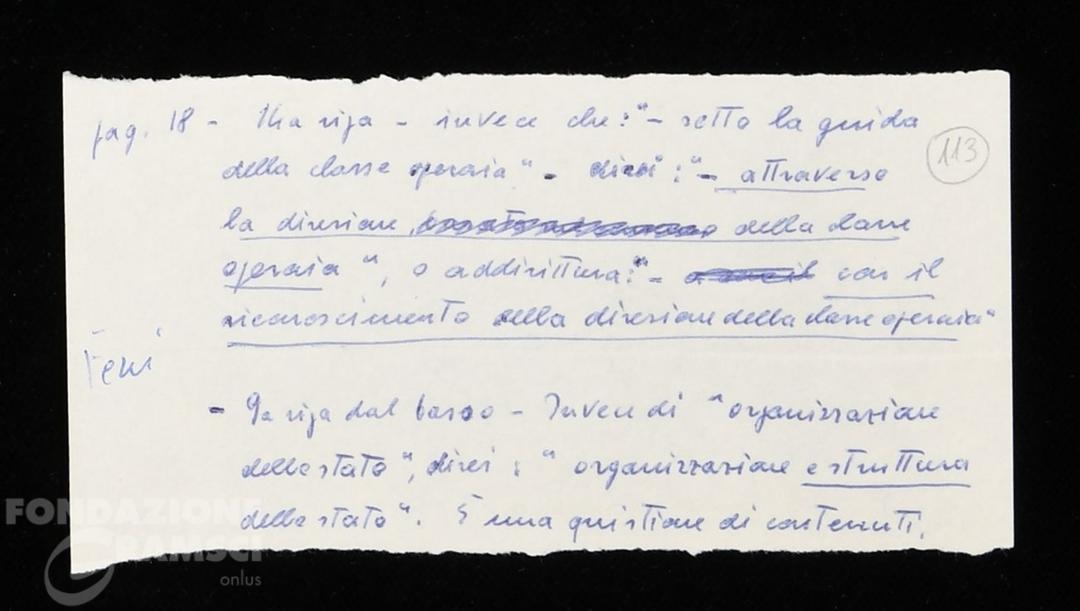 pag. 18 - 14a riga - invece che: "- sotto la guida
113
della classe operaia" - direi: "- attraverso
la direzione della classe
operaia", o addirittura: "- con il
riconoscimento della direzione della classe operaia"
- 9a riga dal basso - Invece di "organizzazione
dello stato", direi: "organizzazione e struttura
dello stato". È una quistione di contenuti.
FONDAZIONE
GRAMSCI
onlus